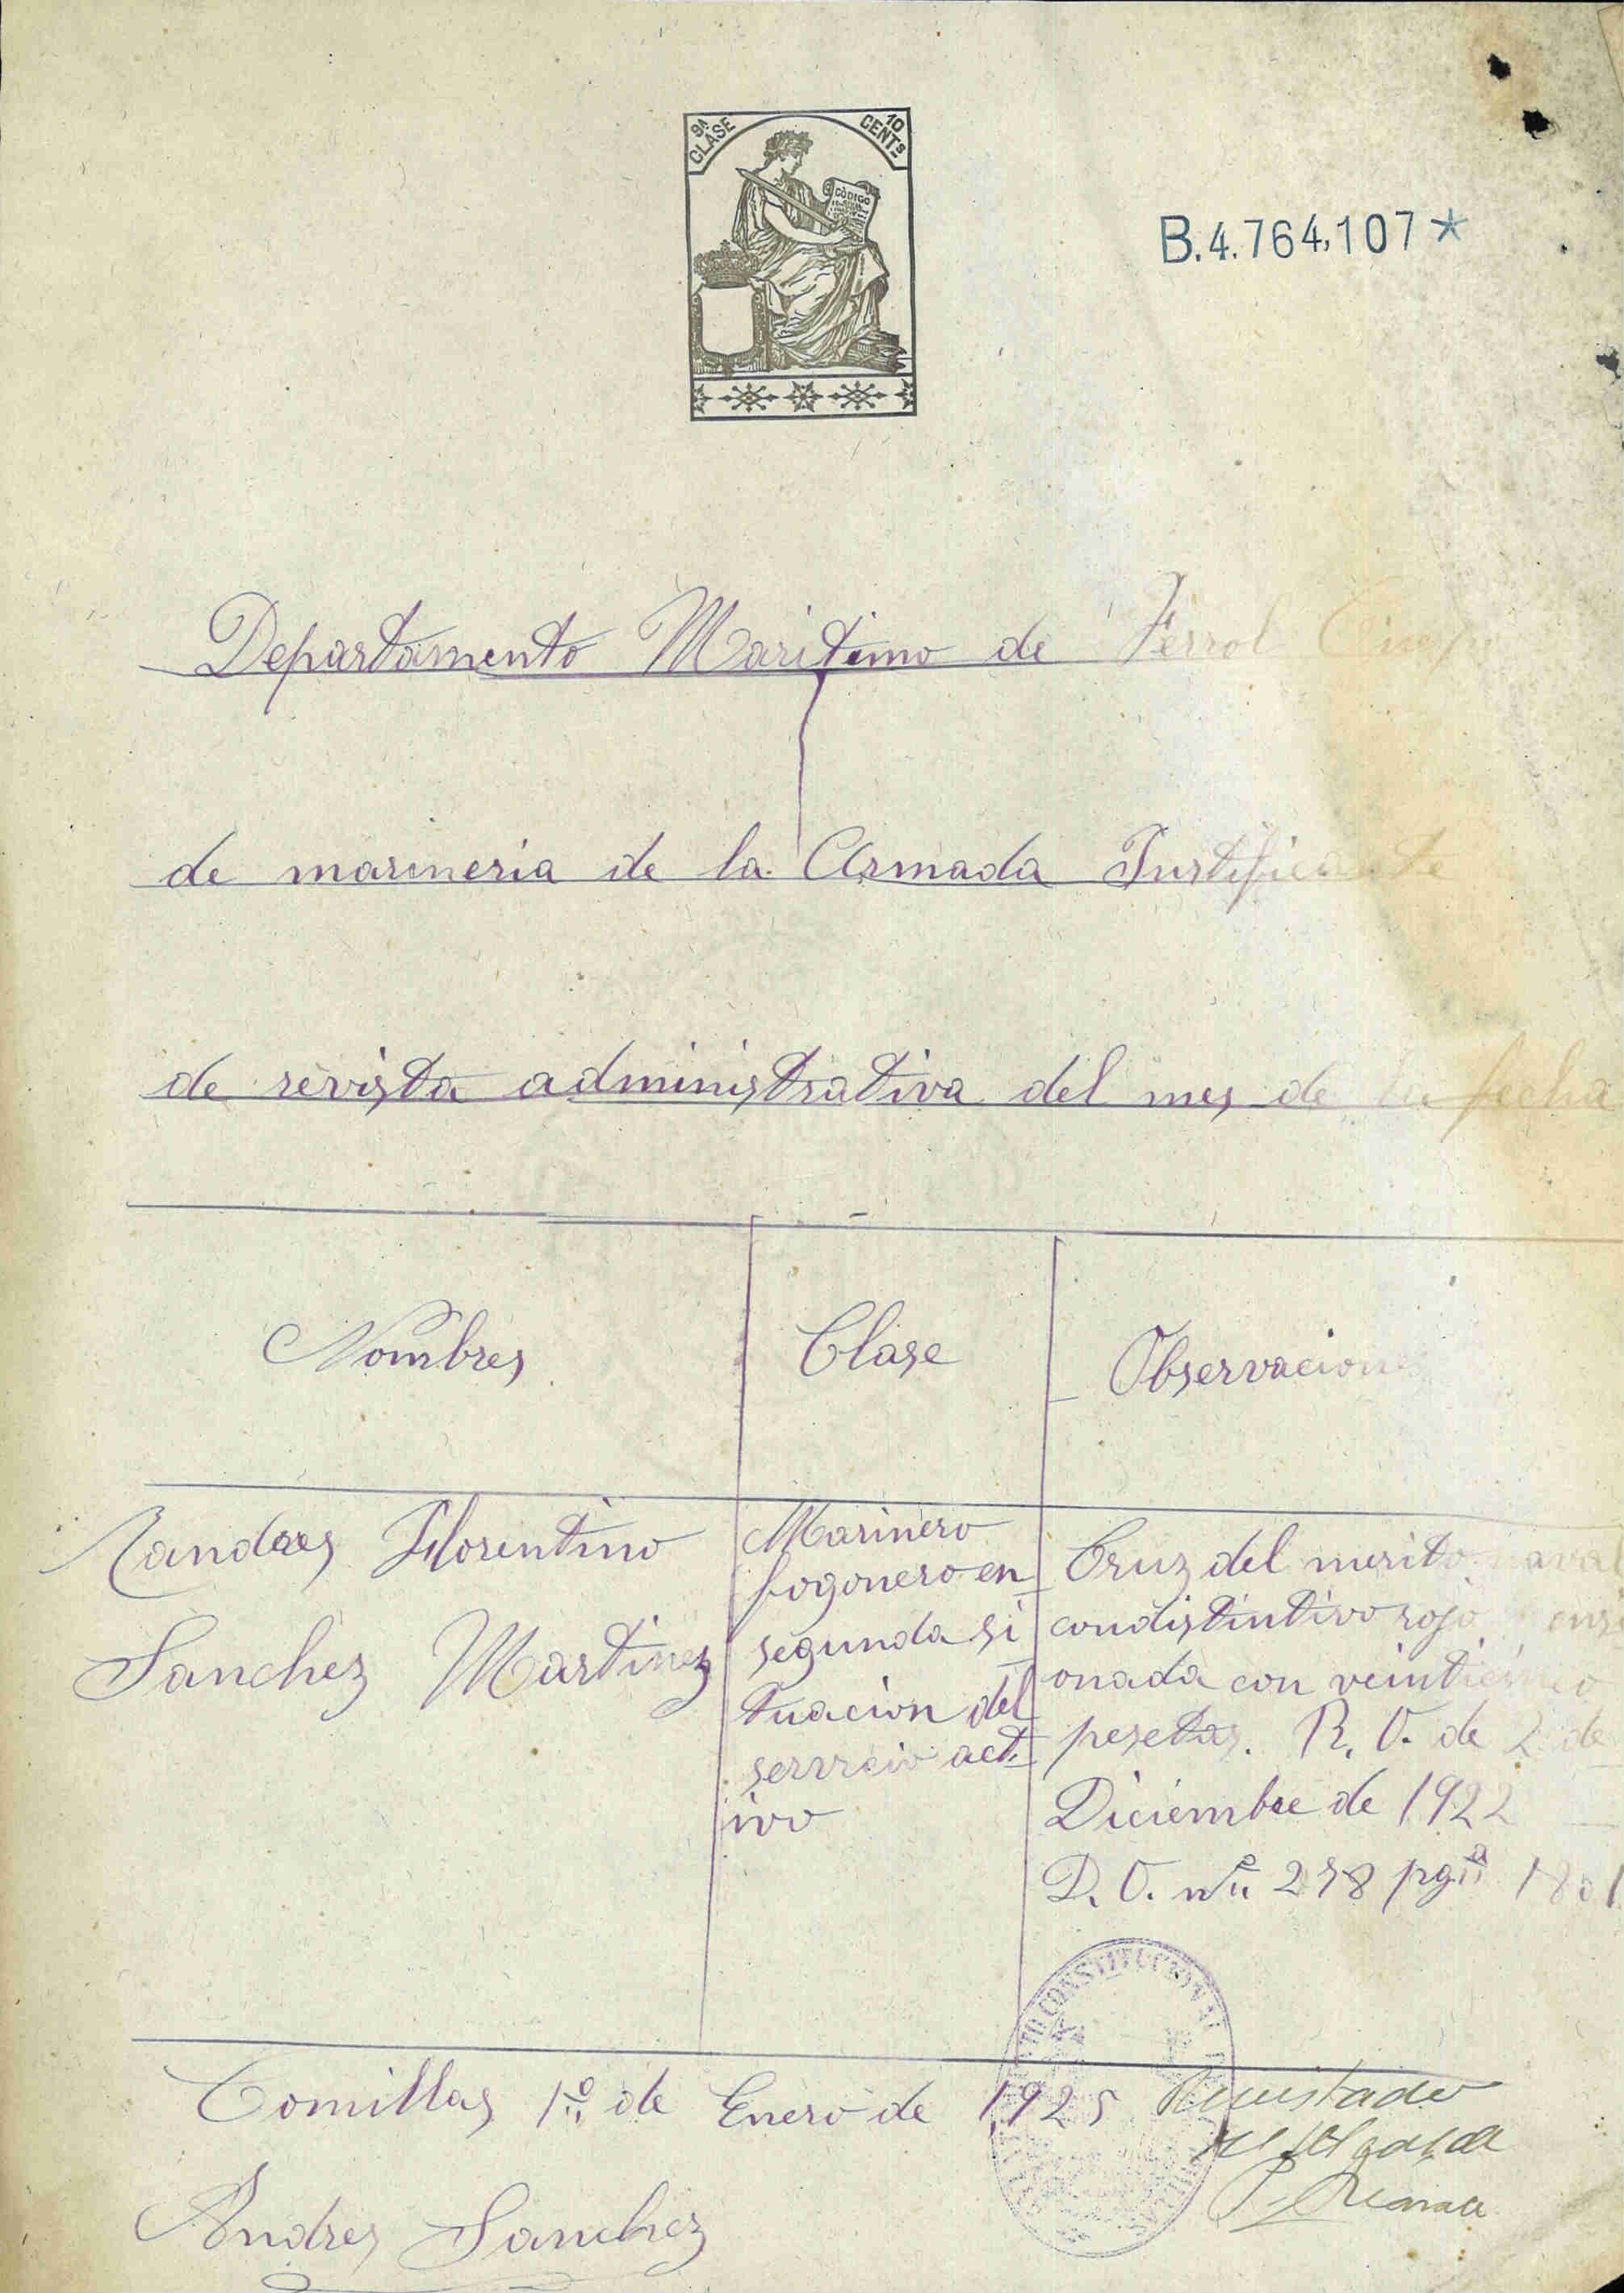 9ª CLASE
10 CENTs
CÓDIGO
B.4.764,107*
Departamento Maritimo de Ferrol
de marineria de la Armada Justificante
de revista administrativa del mes de la fecha
Nombres
Clase
Observaciones
Florentino
Sanchez Martinez
Marinero
fogonero en
segunda si
tuacion del
servicio act
ivo
Cruz del merito naval
con distintivo rojo pensi
onada con veinticinco
pesetas. R. O. de 2 de
Diciembre de 1922
D. O. nº 278 pgª 1801
CONSTITUCIONAL
Comillas 1º de Enero de 1925
Revistado
el Alcalde
Andres Sanchez